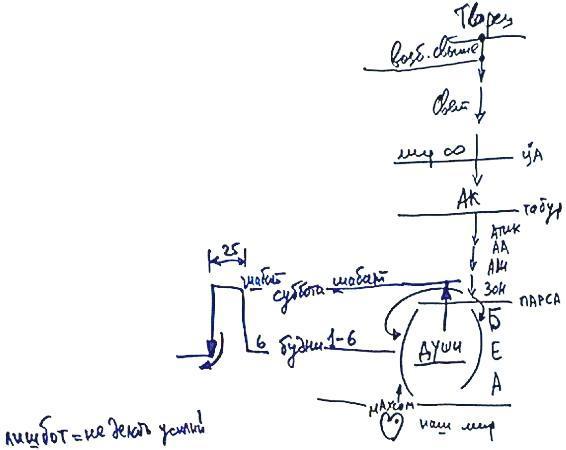 Творец
возб. свыше
Свет
мир ∞
ЦА
АК
табур
АТИК
АА
АВИ
ЗОН
ПАРСА
25
шабат
суббота шабат
6 будни 1-6
ДУШИ
Б
Е
А
МАХСОМ
наш мир
лишбот = не делать усилий!